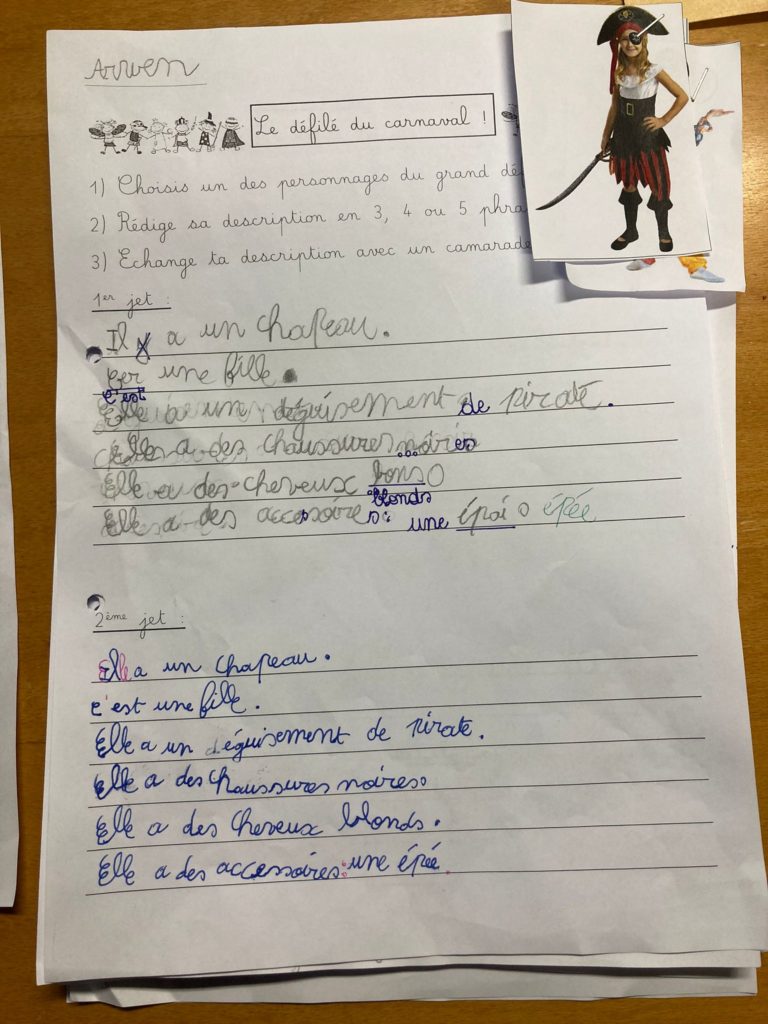 Arwen
Le défilé du carnaval !
1) Choisis un des personnages du grand dé
2) Rédige sa description en 3, 4 ou 5 phra
3) Echange ta description avec un camarade
1er jet :
Il y a un chapeau.
Cer une fille.
c'est
Elle a un déguisement de pirate.
Elle a des chaussures noires
Elle a des cheveux bons
blonds
Elle a des accessoires : une épai épée
2ème jet :
Elle a un chapeau.
c'est une fille.
Elle a un déguisement de pirate.
Elle a des chaussures noires.
Elle a des cheveux blonds.
Elle a des accessoires : une épée.